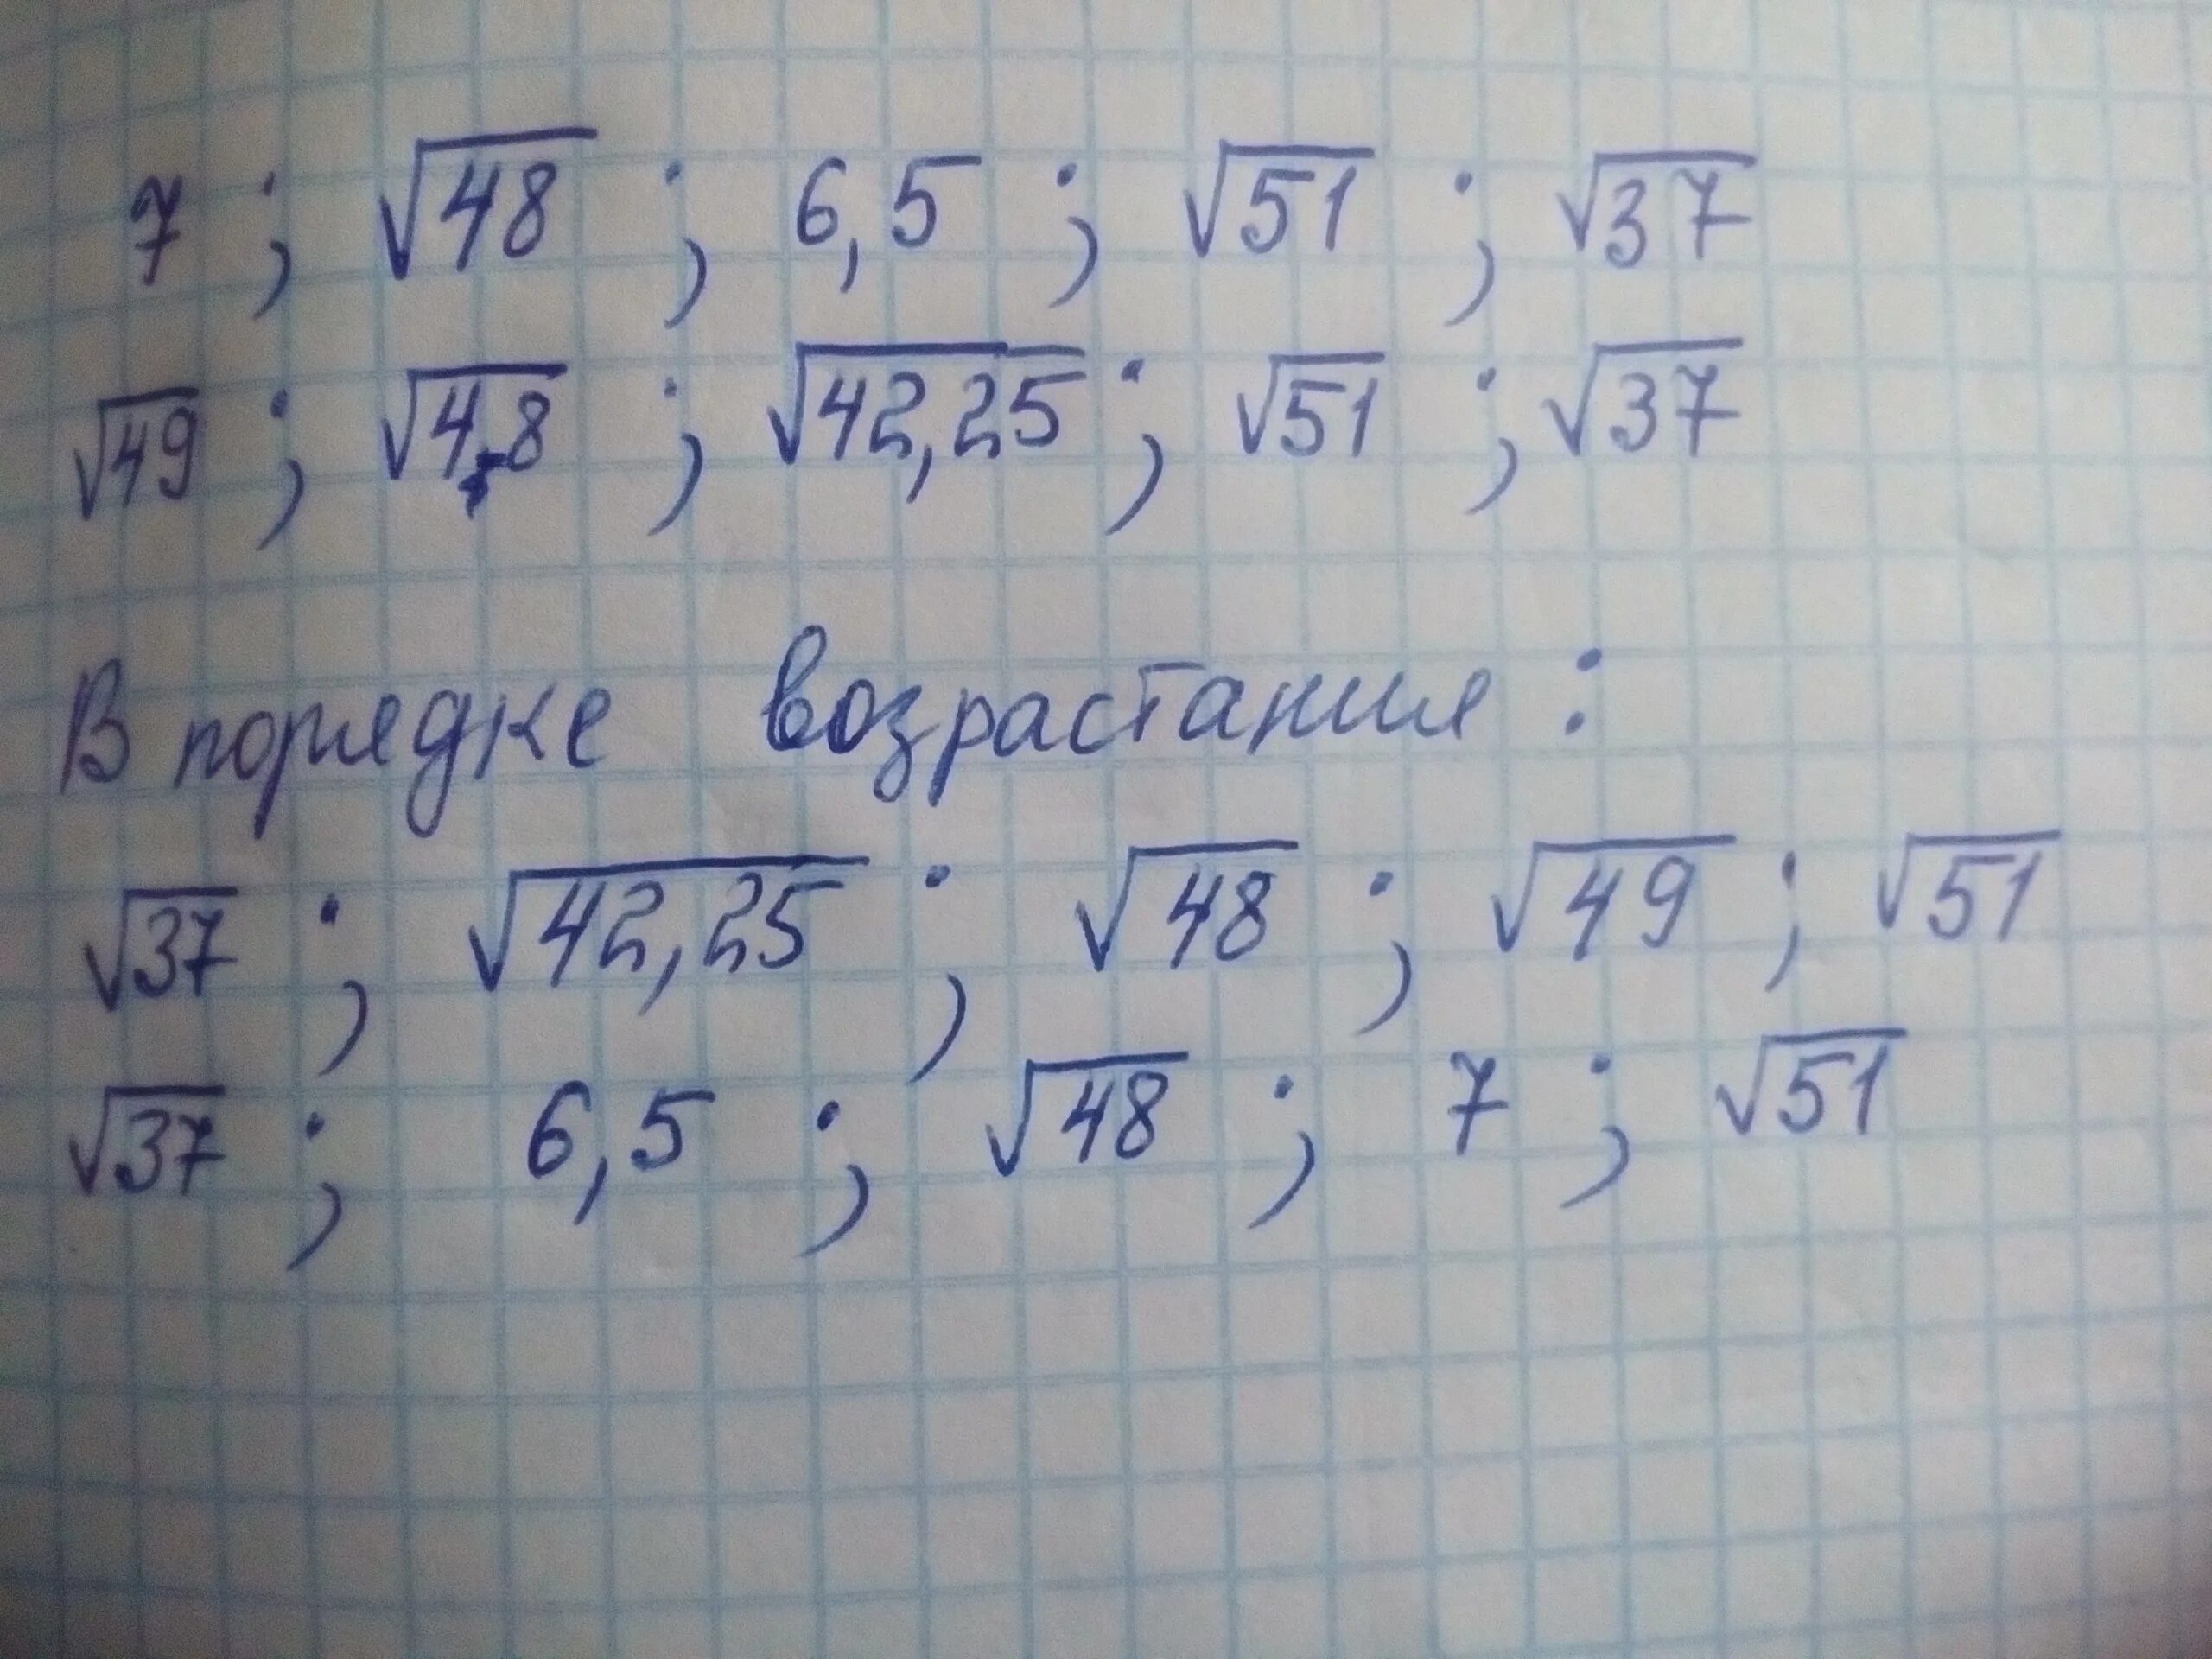 7 ; √48 ; 6,5 ; √51 ; √37
√49 ; √4,8 ; √42,25 ; √51 ; √37
В порядке возрастания :
√37 ; √42,25 ; √48 ; √49 ; √51
√37 ; 6,5 ; √48 ; 7 ; √51